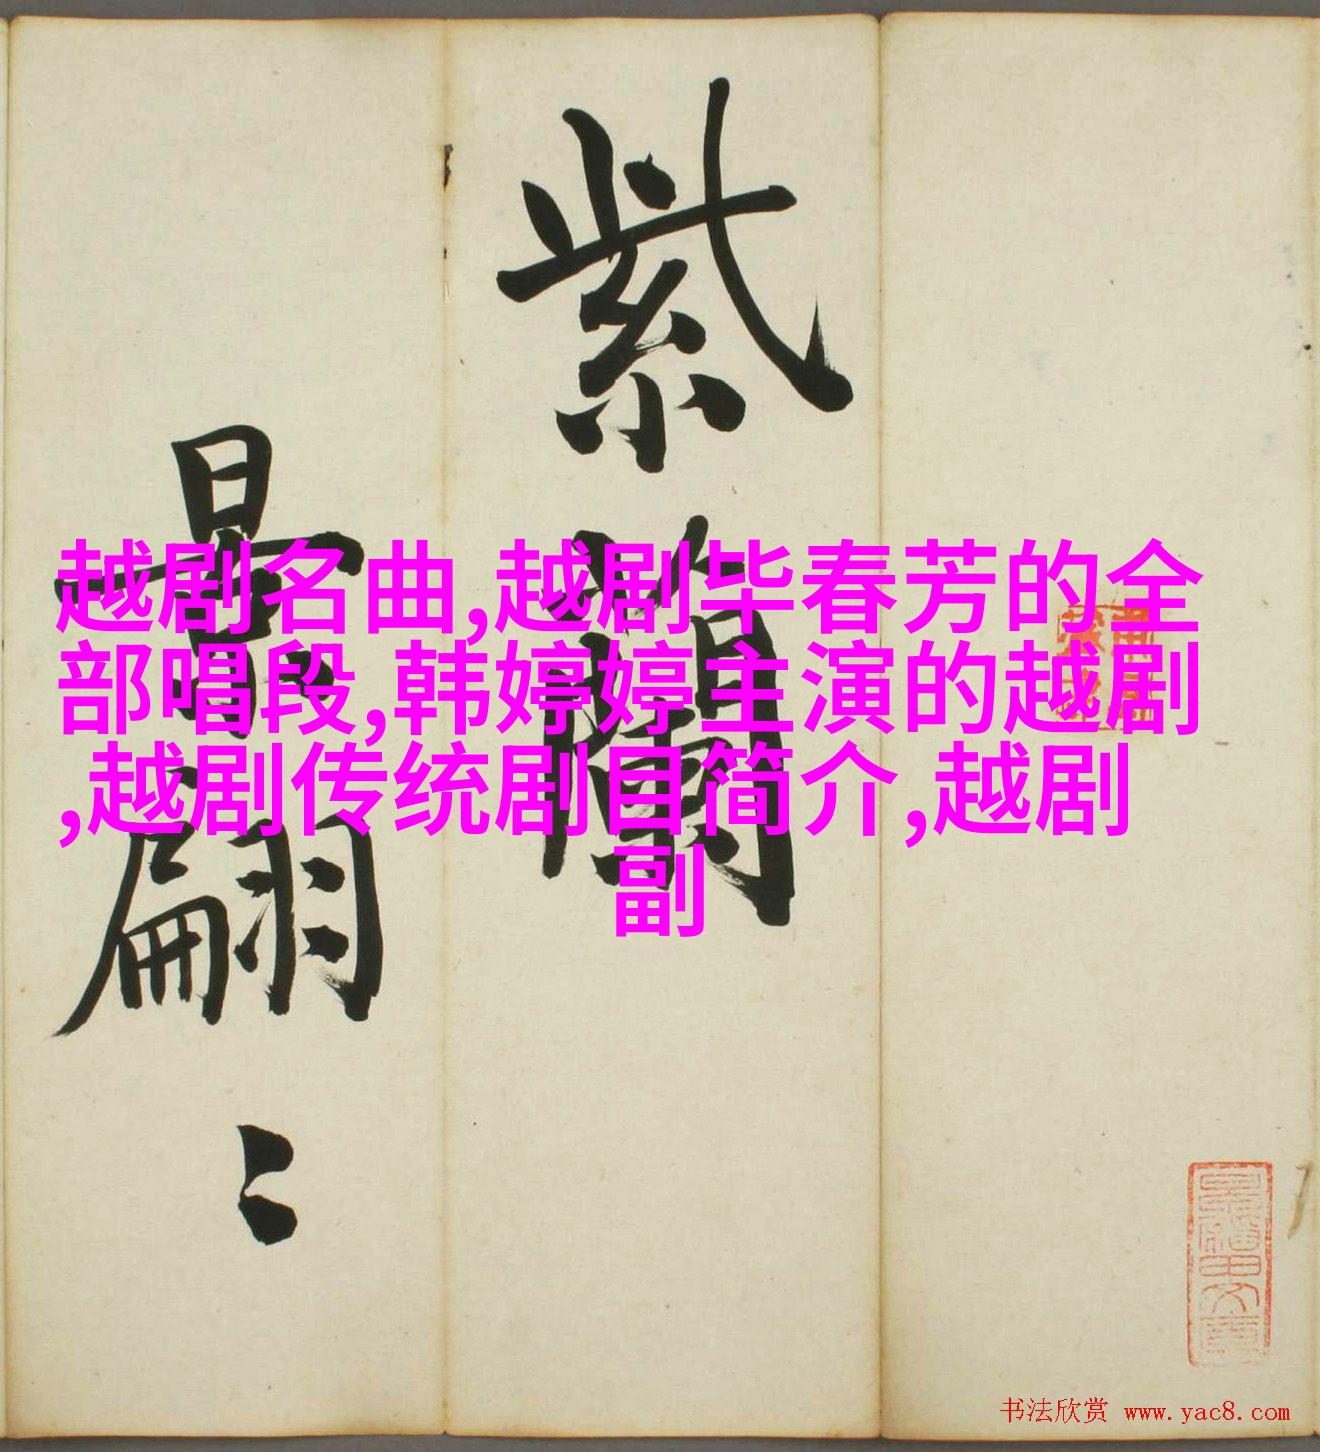 越剧名曲,越剧毕春芳的全
部唱段,韩婷婷主演的越剧
,越剧传统剧目简介,越剧
副
紫蘭
翩〻
书法欣赏 www.yac8.com